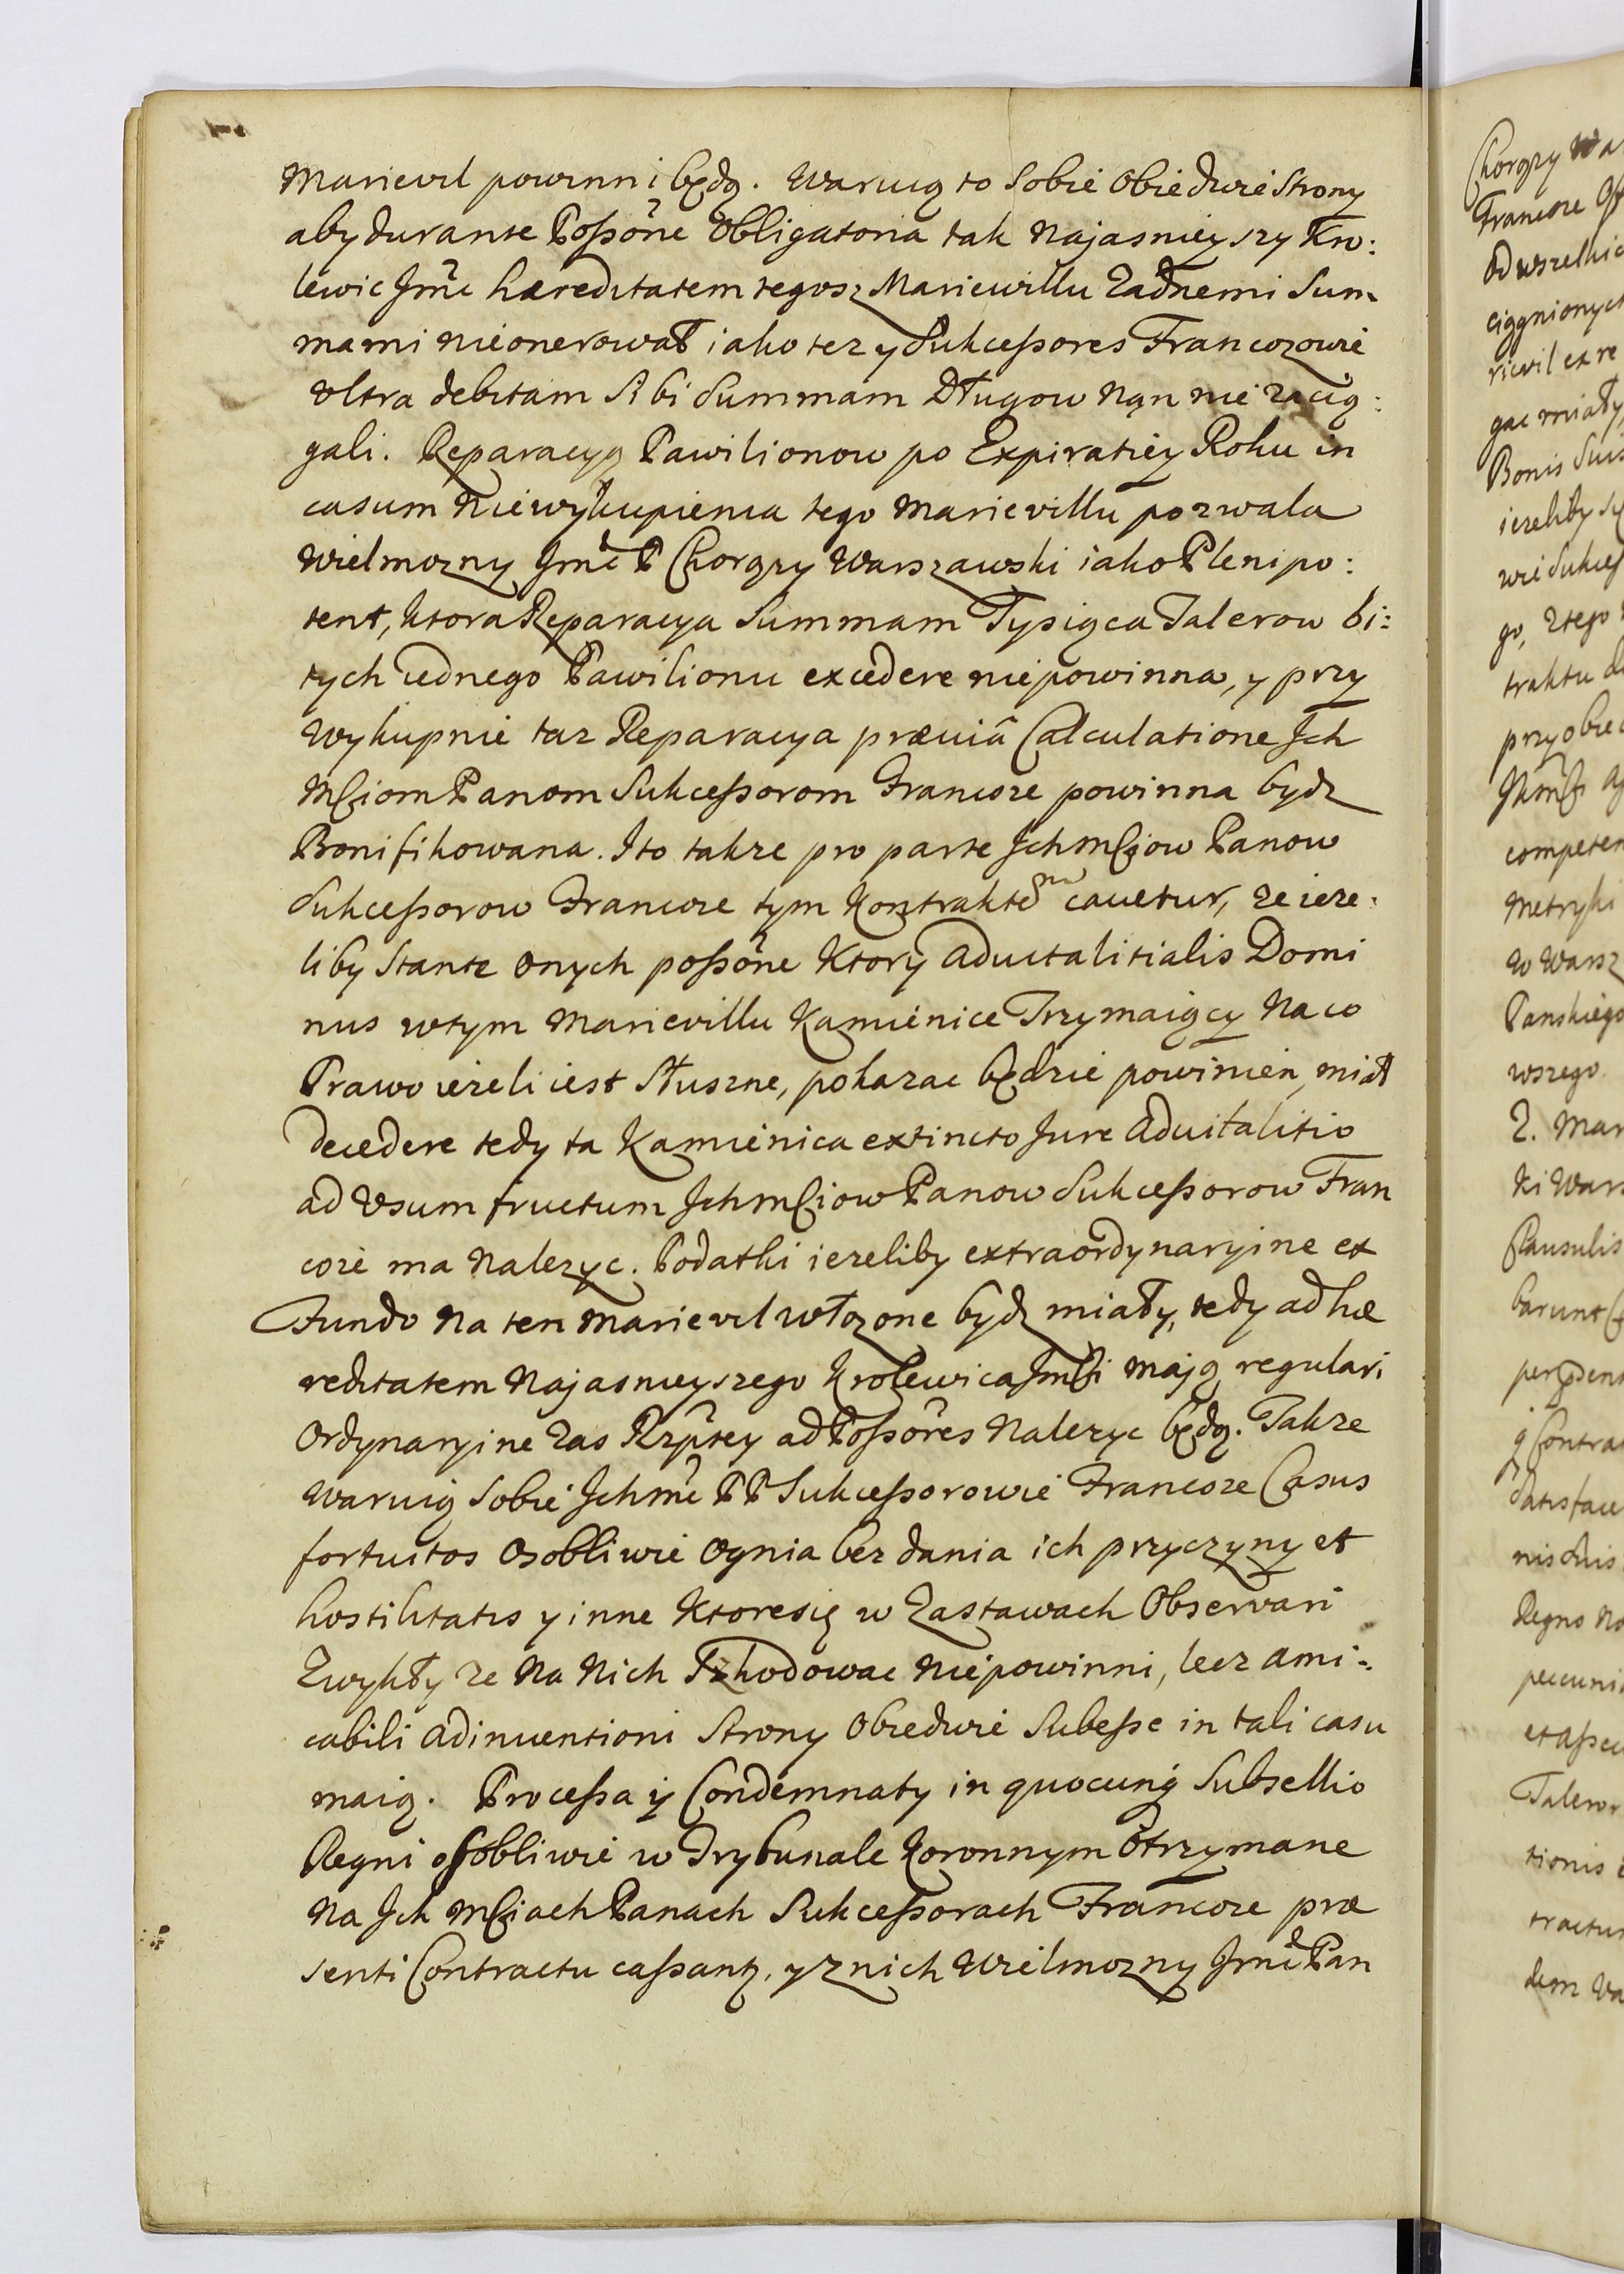 Marievil powinni będą. Waruią to sobie obiedwie strony
aby durante Possone Obligatoria tak Najasnieyszy Kro:
lewic Jmc haereditatem tegosz Marievillu Zadnemi Sum
mami nieonerował iako tez y Sukcessores Francozowie
ultra debitam Sibi Summam Długow Nąn nie zacią:
gali. Reparacyą Pawilionow po Expiratiey Roku in
casum Niewykupienia tego Marievillu pozwala
Wielmozny Jmc P Chorązy Warszawski iako Plenipo:
tent, ktora Reparacya Summam Tysiąca Talerow bi:
tych iednego Pawilionu excedere niepowinna, y przy
Wykupnie taz Reparacya praeviâ Calculatione Ich
Mściom Panom Sukcessorom Francoze powinna bydz
Bonifikowana. I to takze pro parte Ichmściow Panow
Sukcessorow Francoze tym Kontraktem cavetur, ze ieze:
liby Stante onych possone Ktory advitalitialis Domi
nus wtym Marievillu Kamienice Trzymaiący Na co
Prawo iezeli iest Słuszne, pokazac będzie powinien, miał
decedere tedy ta Kamienica extincto Jure advitalitio
ad Usum fructum Ichmściow Panow Sukcessorow Fran
coze ma Nalezyc. Podatki iezeliby extraordynaryine ex
Fundo Na ten Marievil włozone bydz miały, tedy ad hae
reditatem Najasnieyszego Krolewica Jmści mają regulari
Ordynaryine zas Rzptey ad Possores Nalezyc będą. Takze
Waruią Sobie Ichmc PP Sukcessorowie Francoze Casus
fortuitos Osobliwie Ognia bez dania ich przyczyny et
hostilitatis y inne Ktore się w Zastawach Observari
Zwykły ze Na Nich Szkodowac Niepowinni, lecz ami:
cabili adinventioni Strony Obiedwie Subesse in tali casu
maią. Processa y Condemnaty in quocunq Subsellio
Regni osobliwie w Trybunale Koronnym Otrzymane
Na Ich Mściach Panach Sukcessorach Francoze prae
senti Contractu cassantr, y z nich Wielmozny Jmc Pan
Chorązy
Francoze
Od wszelkic
ciągnionych
rievil ex re
gac miały
Bonis
iezeliby
wie Sukces
go, z tego
traktu
przy obie
competen
Metryki
W Warsz
Panskiego
wszego
2. Mar
Ki Wars
Clausulis
Contra
Satisface
Regno
pecuni
Talerow
tionis
tractu